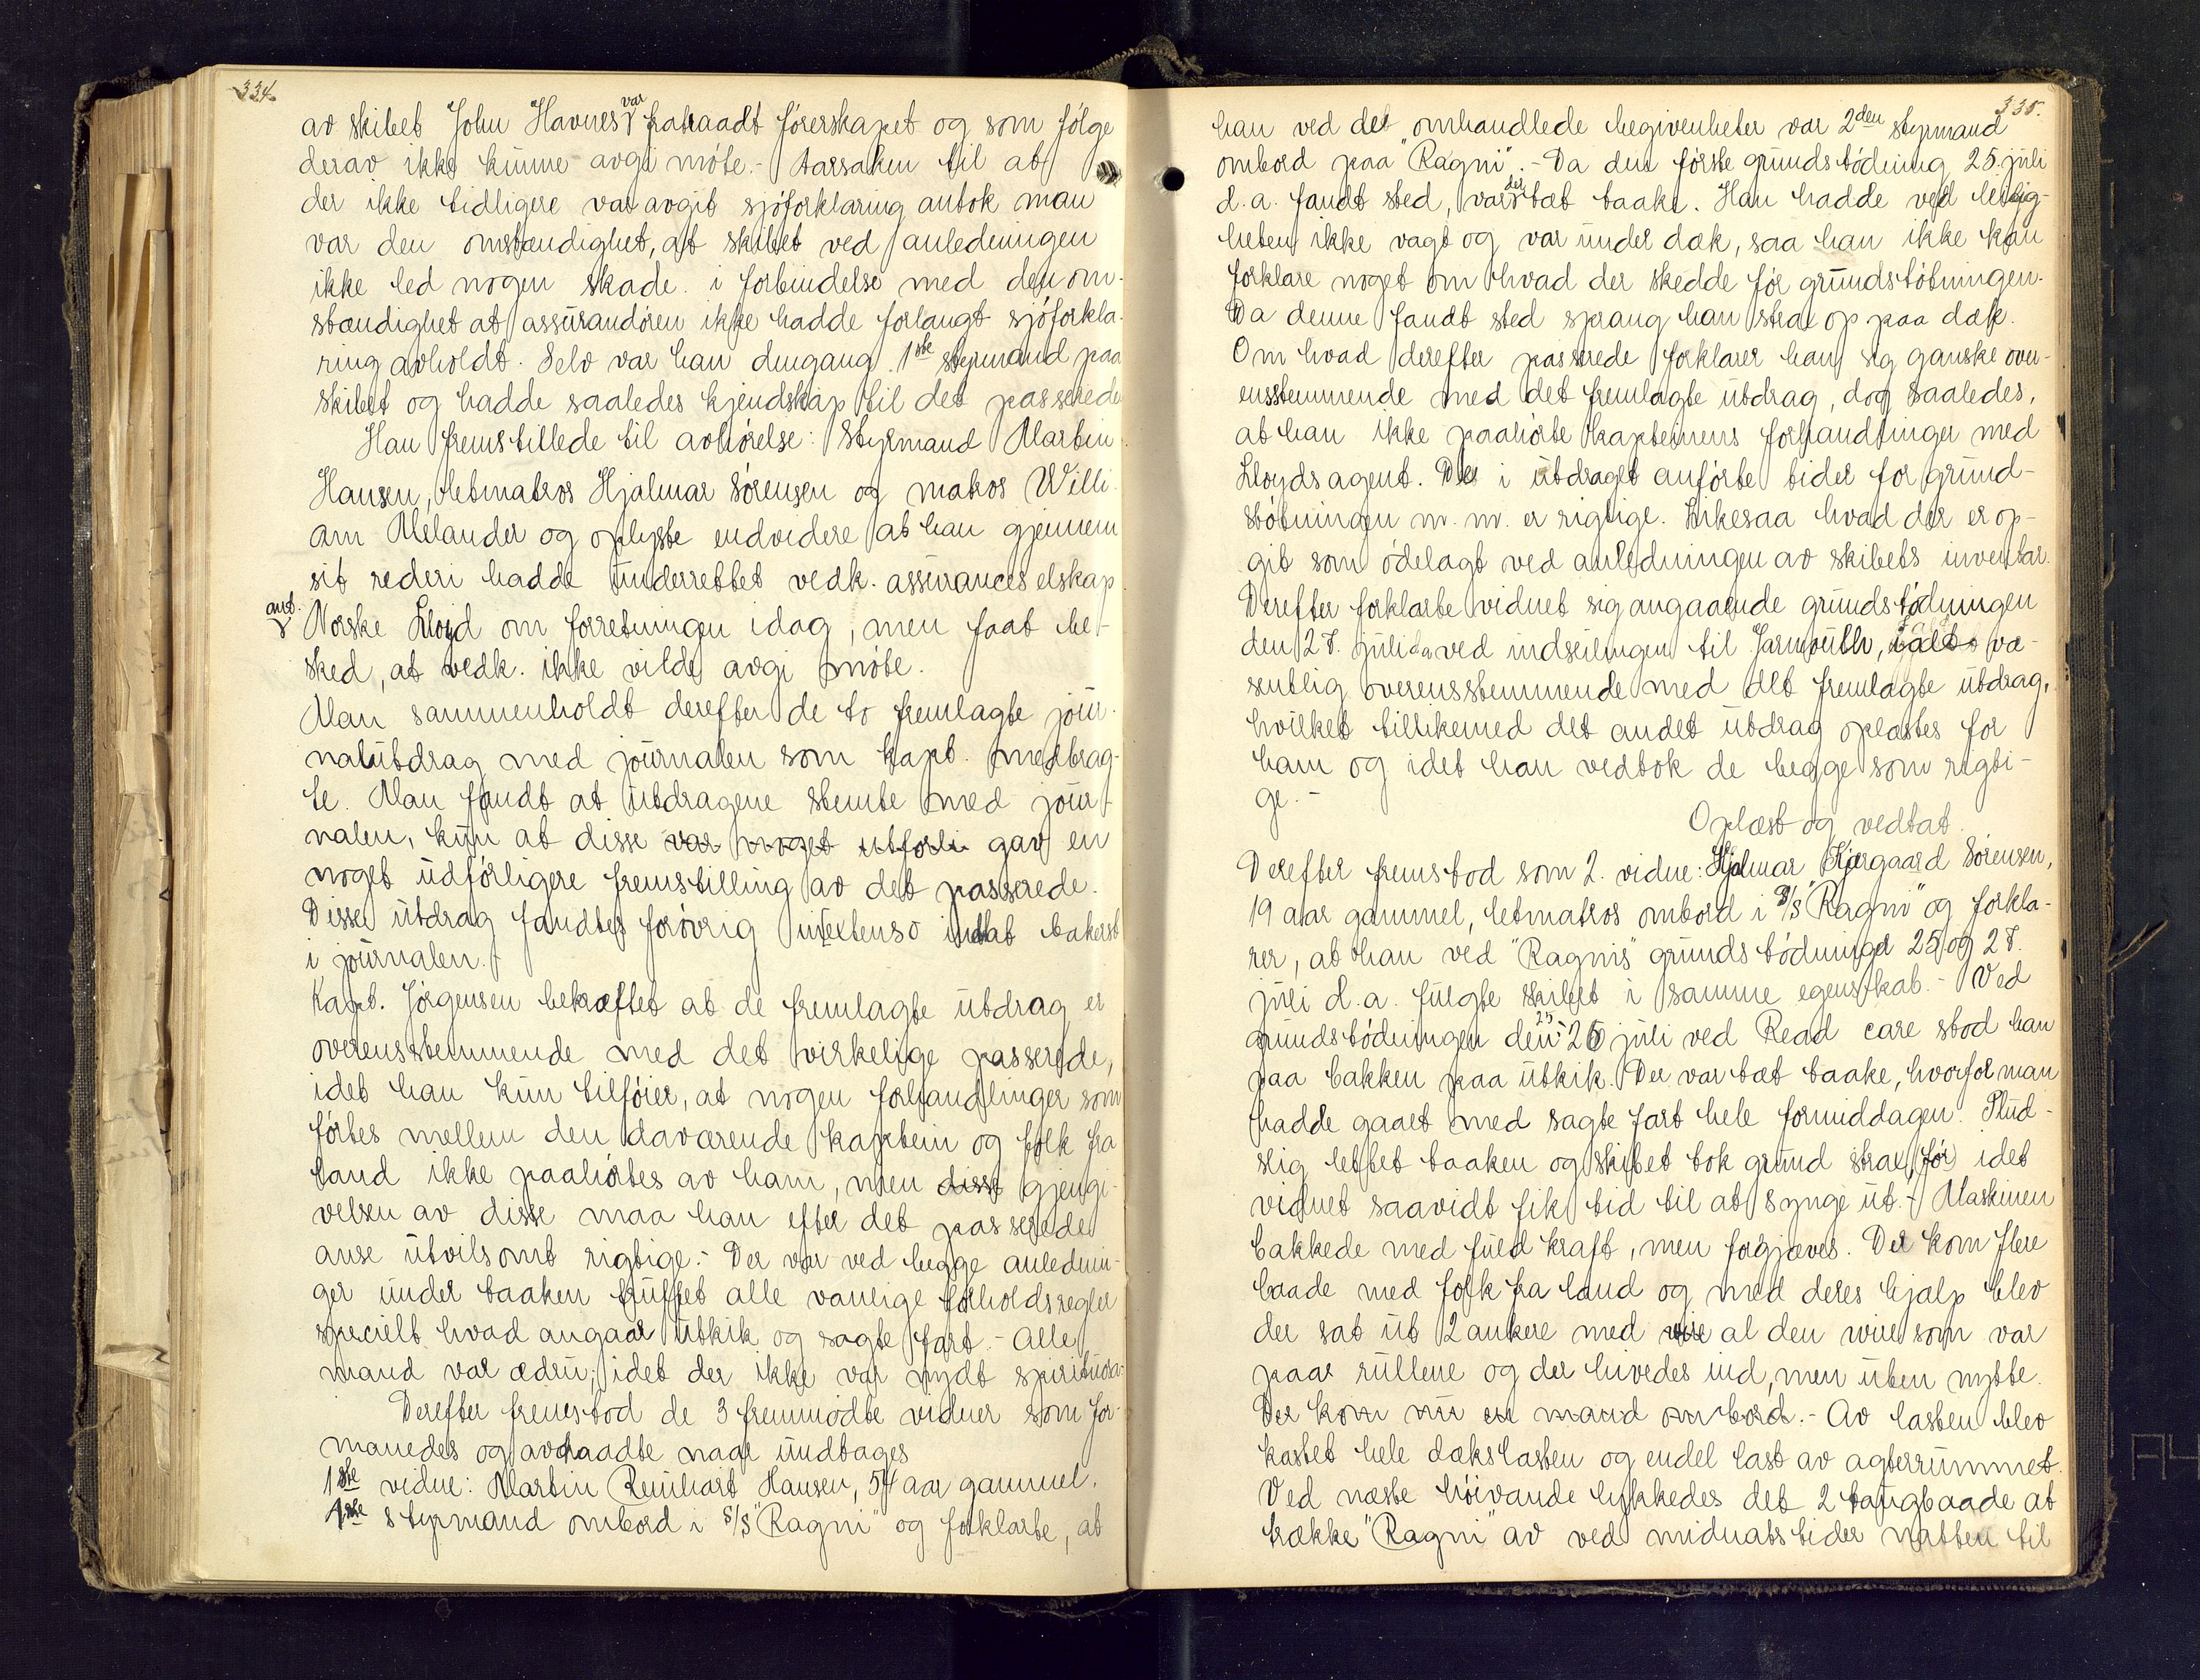 334.
av skibet John Havnes var fratraadt førerskapet og som følge
derav ikke kunne avgi møte. - Aarsaken til at
der ikke tidligere var avgit sjøforklaring antok man
var den omstændighet, at skibet ved anledningen
ikke led nogen skade i forbindelse med den om-
stændighet at assurandøren ikke hadde forlangt sjøforkla-
ring avholdt. Selv var han dengang 1ste styrmand paa
skibet og hadde saaledes kjendskap til det passerede
Han fremstillede til avhørelse: Styrmand Martin
Hansen, letmatros Hjalmar Sørensen og matros Willi-
am Melander og oplyste endvidere at han gjennem
sit rederi hadde underrettet vedk. assuranceselskap
ant. Norske Lloyd om forretningen idag, men faat be-
sked, at vedk. ikke vilde avgi møte.
Man sammenholdt derefter de to fremlagte jour-
nalutdrag med journalen som kapt. medbrag-
te. Man fandt at utdragene stemte med jour-
nalen, kun at disse var noget utførli gav en
noget udførligere fremstilling av det passerede.
Disse utdrag fandtes forøvrig in extenso indtat bakerst
i journalen. -
Kapt. Jørgensen bekræftet at de fremlagte utdrag er
overensstemmende med det virkelige passerede,
idet han kun tilføier, at nogen forhandlinger som
førtes mellem den daværende kaptein og folk fra
land ikke paahørtes av ham, men disse gjengi-
velsen av disse maa han efter det passerede
anse utvilsomt rigtige. - Der var ved begge anlednin-
ger under taaken truffet alle vanlige forholdsregler
specielt hvad angaar utkik og sagte fart. - Alle
mand var ædru, idet der ikke var nydt spirituosa.
Derefter fremstod de 3 fremmødte vidner som for-
manedes og avtraadte naar undtages
1ste vidne: Martin Reinhart Hansen, 54 aar gammel.
1ste styrmand ombord i S/S "Ragni" og forklarte, at
335.
han ved det omhandlede begivenheter var 2den styrmand
ombord paa "Ragni". - Da den første grundstødning 25. juli
d.a. fandt sted, var der tæt taake. Han hadde ved leilig-
heten ikke vagt og var under dæk, saa han ikke kan
forklare noget om hvad der skedde før grundstøtningen.
Da denne fandt sted sprang han strax op paa dæk.
Om hvad derefter passerede forklarer han sig ganske over-
ensstemmende med det fremlagte utdrag, dog saaledes,
at han ikke paahørte kapteinens forhandlinger med
Lloyds agent. De i utdraget anførte tider for grund-
støtningen m. m. er rigtige. Likesaa hvad der er op-
git som ødelagt ved anledningen av skibets inventar.
Derefter forklarte vidnet sig angaaende grundstødningen
den 27. juli da ved indseilingen til Jarmouth, væ-
sentlig overensstemmende med det fremlagte utdrag,
hvilket tillikemed det andet utdrag oplæstes for
ham og idet han vedtok de begge som rigti-
ge. -
Oplæst og vedtat.
Derefter fremstod som 2. vidne: Hjalmar Kjærgaard Sørensen,
19 aar gammel, letmatros ombord i S/S "Ragni" og forkla-
rer, at han ved "Ragnis" grundstødninger 25 og 27.
juli d.a. fulgte skibet i samme egenskab. - Ved
grundstødningen den 25 26 juli ved Read care stod han
paa bakken paa utkik. Der var tæt taake, hvorfor man
hadde gaaet med sagte fart hele formiddagen. Plud-
slig lettet taaken og skibet tok grund strax (før) idet
vidnet saavidt fik tid til at synge ut. - Maskinen
bakkede med fuld kraft, men forgjæves. Der kom flere
baade med folk fra land og med deres hjælp blev
der sat ut 2 ankere med wire al den wire som var
paa rullene og der hivedes ind, men uten nytte.
Der kom nu en mand ombord. - Av lasten blev
kastet hele dækslasten og endel last av agterrummet.
Ved næste høivande lykkedes det 2 taugbaade at
trække "Ragni" av ved midnatstider natten til